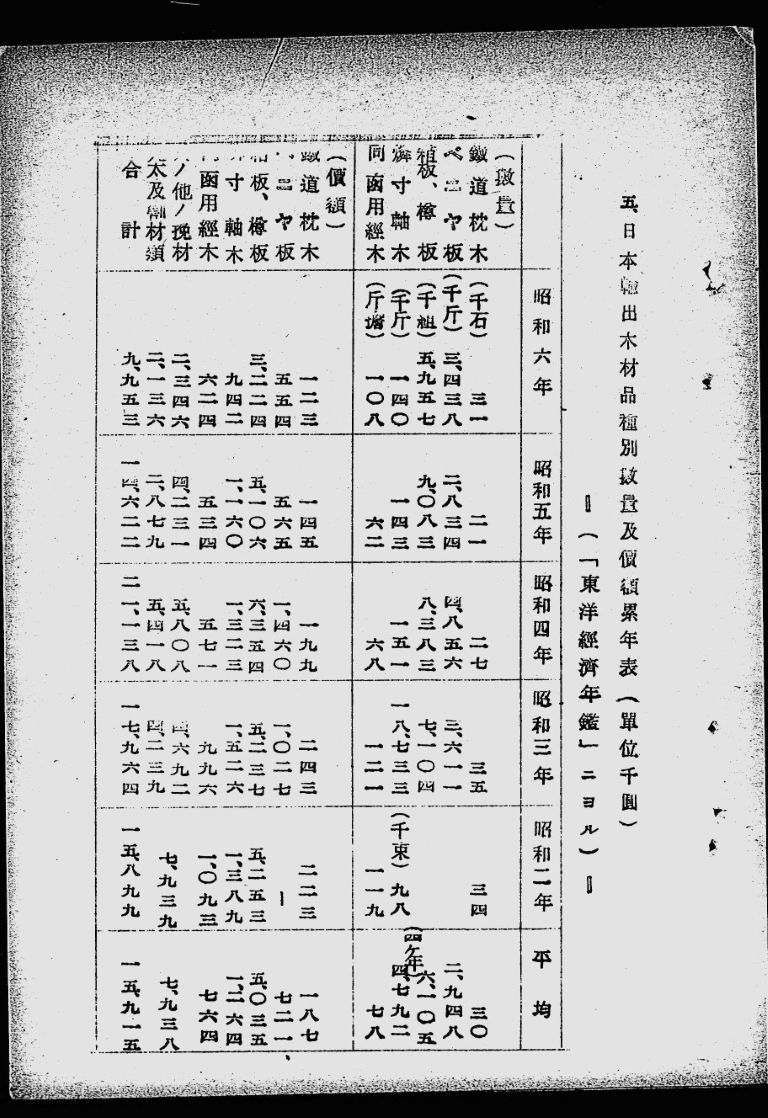 五、日本輸出木材品種別數量及價額累年表(單位千圓)
―(「東洋經濟年鑑」ニヨル)―
昭和六年 昭和五年 昭和四年 昭和三年 昭和二年 平均
(數量)
鐵道枕木 (千石) 三一 二一 二七 三五 三四 三〇
ベニヤ板 (千斤) 三、四三八 二、八三四 四、八五六 三、六一一 二、九四八
箱板、樽板 (千組) 五、九五七 九、〇八三 八、三八三 七、一〇四 (四ケ年) 六、一〇五
燐寸軸木 (千斤) 一四〇 一四三 一五一 一八、七三三 (千束) 九八 四、七九二
同函用經木 (斤擔) 一〇八 六二 六八 一二一 一一九 七八
(價額)
鐵道枕木 一二三 一四五 一九九 二四三 二二三 一八七
ベニヤ板 五五四 五六五 一、四六〇 一、〇二七 ― 七二一
箱板、樽板 三、二二四 五、一〇六 六、三五四 五、二三七 五、二五三 五、〇三五
寸軸木 九四二 一、一六〇 一、三二三 一、五二六 一、三八九 一、二六四
函用經木 六二四 五三四 五七一 九九六 一、〇九三 七六四
ノ他ノ挽材 二、三四六 四、二三一 五、八〇八 四、六九二
太及割材類 二、一三六 二、八七九 五、四一八 四、二三九 七、九三九 七、九三八
合計 九、九五三 一四、六二二 二一、一三八 一七、九六四 一五、八九九 一五、九一五